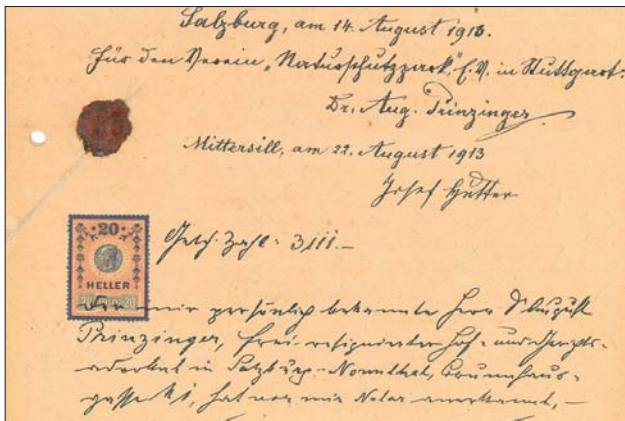 Salzburg, am 14. August 1913.
Für den Verein „Naturschutzpark“, E.V. in Stuttgart:
Dr. Aug. Prinzinger
Mittersill, am 22. August 1913
Josef Hutter
20
HELLER
Gesch. Zahl: 3111.-
Der mir persönlich bekannte Herr Dr August
Prinzinger, frei-resignierter Hof- und Gerichts-
advokat in Salzburg-Nonnthal, Brunnhaus-
gasse N: 1, hat vor mir Notar anerkannt, -